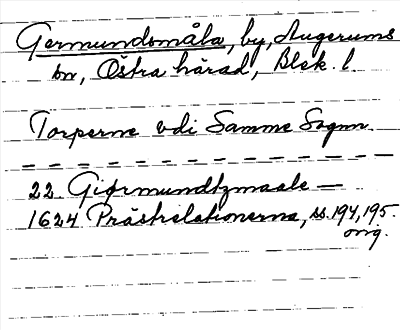 Germundsmåla, by, Augerums
sn, Östra härad, Blek. l.
Torperne vdi Samme Sognn.
22. Giørmundtzmaale —
1624 Prästrelationerna, ss. 194, 195.
orig.